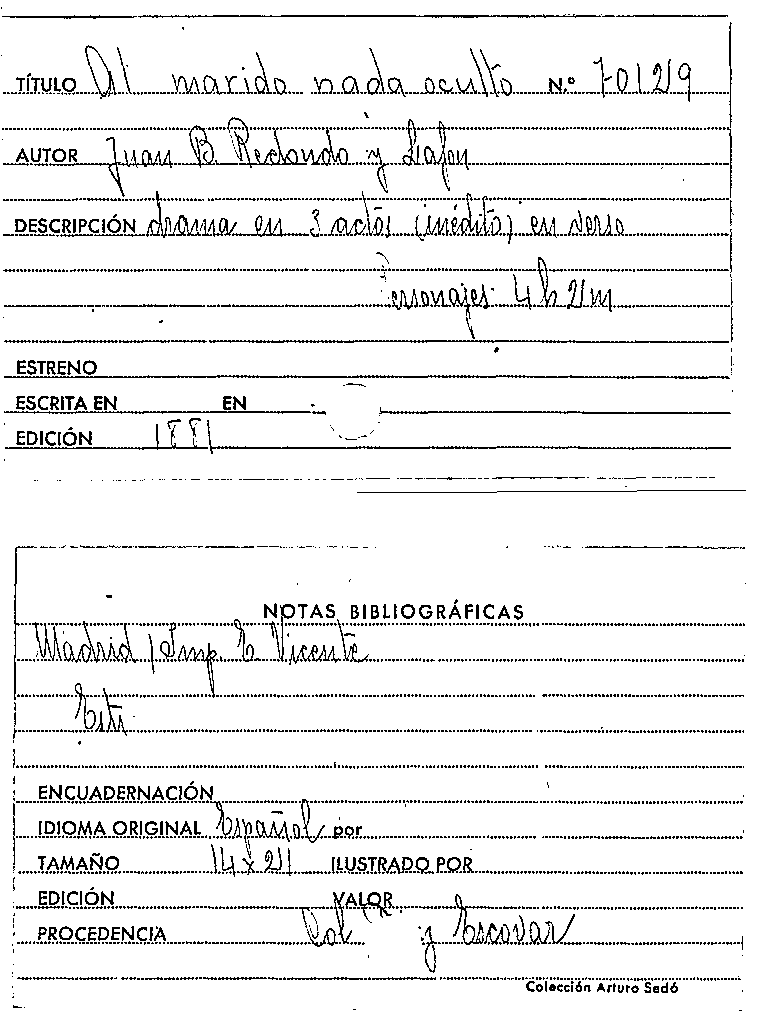 TÍTULO Al marido nada oculto N.º 70129
AUTOR Juan B. Redondo y
DESCRIPCIÓN drama en 3 actos (inédito) en verso
Personajes 4 h 2 m
ESTRENO
ESCRITA EN EN
EDICIÓN 1881
NOTAS BIBLIOGRÁFICAS
Madrid / Imp E. Vicente
ENCUADERNACIÓN
IDIOMA ORIGINAL Español por
TAMAÑO 14 x 21 ILUSTRADO POR
EDICIÓN VALOR
PROCEDENCIA Col y Escovar
Colección Arturo Sedó